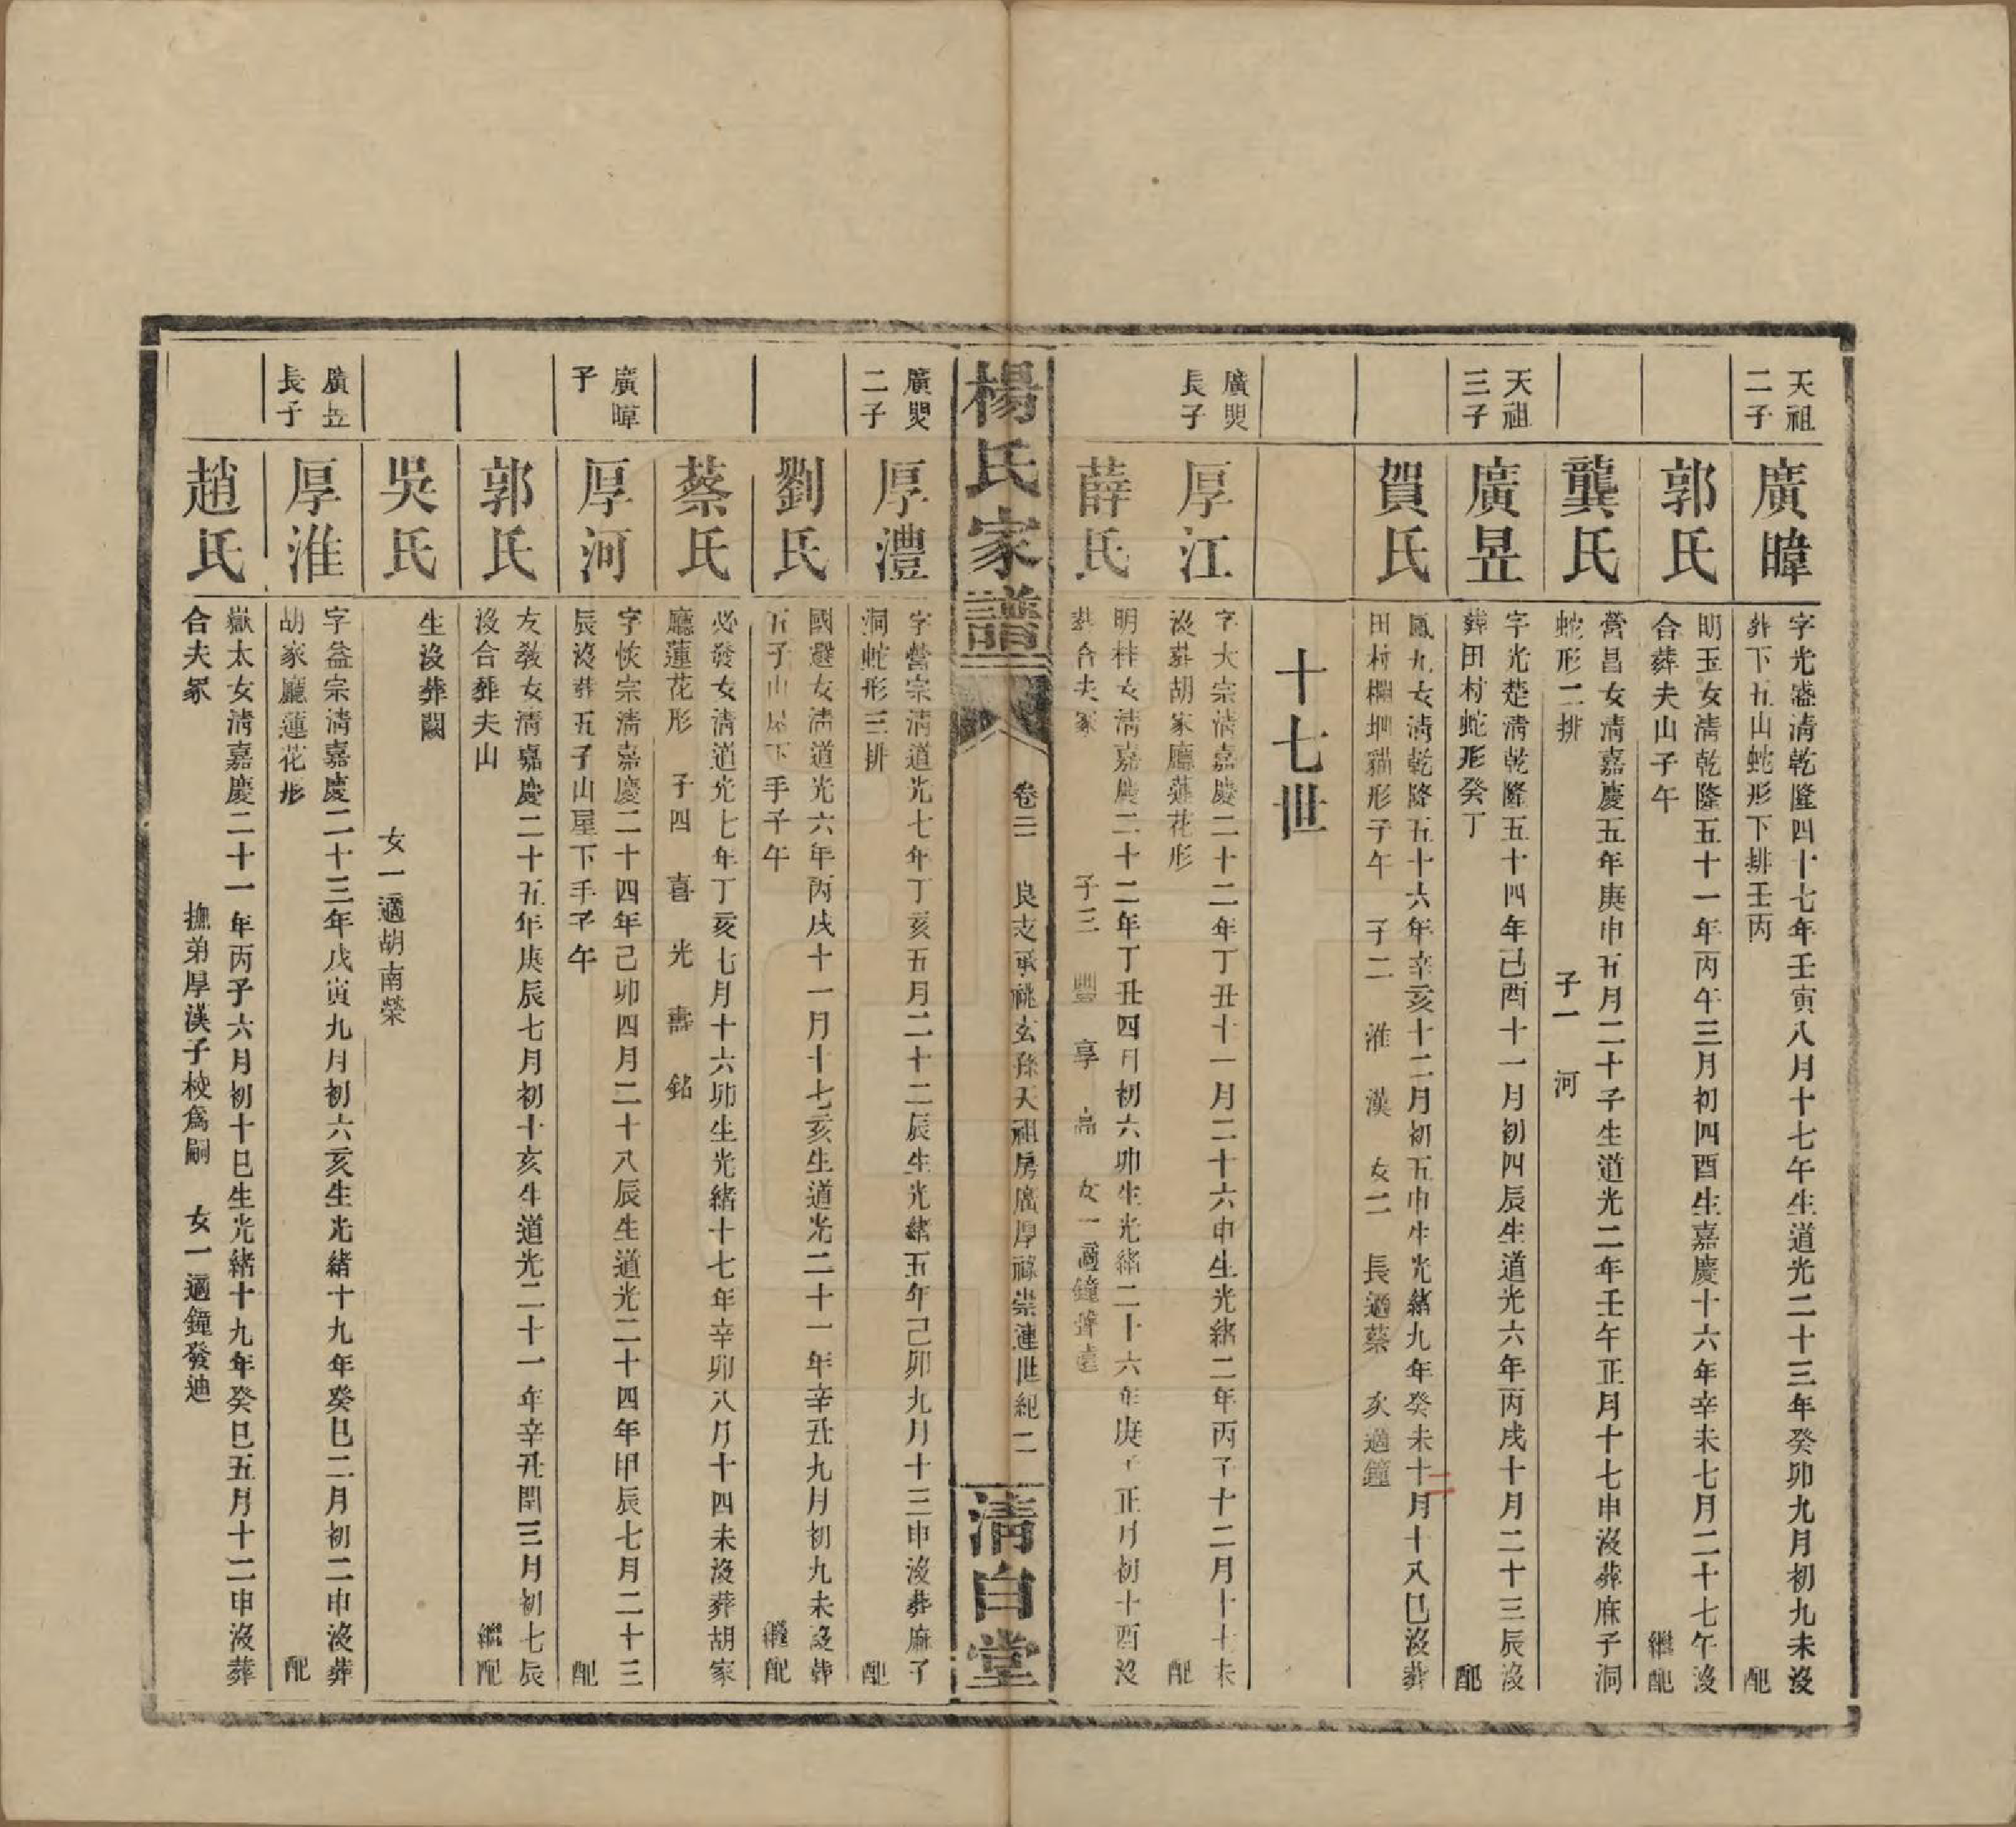 天祖
二子
廣暐
字光瀊淸乾隆四十七年壬寅八月十七午生道光二十三年癸卯九月初九未沒
葬下五山蛇形下排壬丙 配
郭氏
明玉女淸乾隆五十一年丙午三月初四酉生嘉慶十六年辛未七月二十七午沒
合葬夫山子午 繼配
龔氏
營昌女淸嘉慶五年庚申五月二十子生道光二年壬午正月十七申沒葬麻子洞
蛇形二排 子一 河
天祖
三子
廣昱
字光楚淸乾隆五十四年己酉十一月初四辰生道光六年丙戌十月二十三辰沒
葬田村蛇形癸丁 配
賀氏
鳳九女淸乾隆五十六年辛亥十二月初五申生光緒九年癸未十月十八巳沒葬
田村欄坳貓形子午 子二 淮 漢 女二 長適蔡 次適鐘
十七世
廣煚
長子
厚江
字大宗淸嘉慶二十二年丁丑十一月二十六申生光緒二年丙子十二月十七未
沒葬胡家廳蓮花形 配
薛氏
明桂女淸嘉慶二十二年丁丑四月初六卯生光緒二十六年庚子正月初十酉沒
葬合夫冢 子三 豐 享 高 女一適鐘
楊氏家譜 卷三 良支承祧玄孫天祖房廣厚祿崇連世紀 二 淸白堂
廣煚
二子
厚澧
字營宗淸道光七年丁亥五月二十二辰生光緒五年己卯九月十三申沒葬麻子
洞蛇形三排 配
劉氏
國選女淸道光六年丙戌十一月十七亥生道光二十一年辛丑九月初九未沒葬
五子山屋下手子午 繼配
蔡氏
必發女淸道光七年丁亥七月十六卯生光緒十七年辛卯八月十四未沒葬胡家
廳蓮花形 子四 喜 光 壽 銘
廣暐
子
厚河
字恢宗淸嘉慶二十四年己卯四月二十八辰生道光二十四年甲辰七月二十三
辰沒葬五子山屋下手子午 配
郭氏
友教女淸嘉慶二十五年庚辰七月初十亥生道光二十一年辛丑閏三月初七辰
沒合葬夫山 繼配
吳氏
生沒葬闕
女一適胡南榮
廣昱
長子
厚淮
字益宗淸嘉慶二十三年戊寅九月初六亥生光緒十九年癸巳二月初二申沒葬
胡家廳蓮花形 配
趙氏
嶽太女淸嘉慶二十一年丙子六月初十巳生光緒十九年癸巳五月十二申沒葬
合夫冢 撫弟厚漢子校爲嗣 女一適鐘發迪